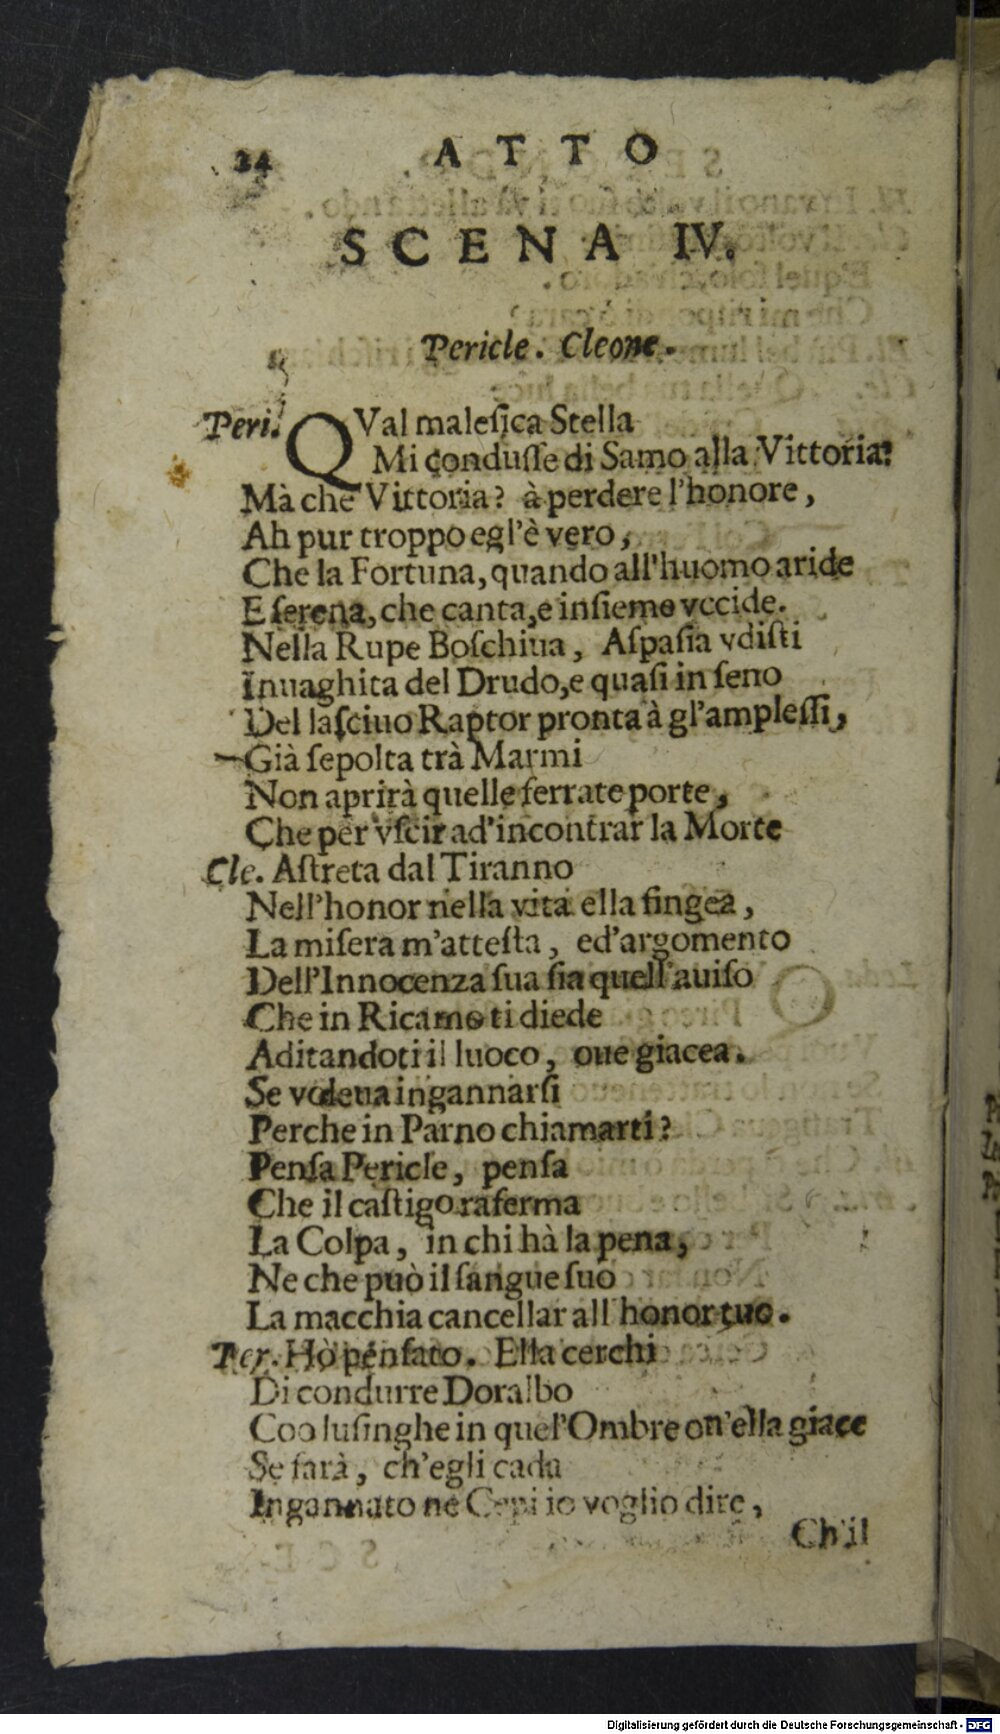 24 ATTO
SCENA IV.
Pericle. Cleone.
Peri. QVal malefica Stella
Mi condusse di Samo alla Vittoria?
Mà che Vittoria? à perdere l'honore,
Ah pur troppo egl'è vero,
Che la Fortuna, quando all'huomo aride
E ſerena, che canta, e inſieme vccide.
Nella Rupe Boſchiua, Aſpaſia vdiſti
Inuaghita del Drudo, e quaſi in ſeno
Del laſciuo Raptor pronta à gl'ampleſſi,
Già ſepolta trà Marmi
Non aprirà quelle ferrate porte,
Che per vſcir ad'incontrar la Morte
Cle. Aſtreta dal Tiranno
Nell'honor nella vita ella fingea,
La miſera m'atteſta, ed'argomento
Dell'Innocenza ſua ſia quell'auiſo
Che in Ricamo ti diede
Aditandoti il luoco, oue giacea.
Se voleua ingannarſi
Perche in Parno chiamarti?
Penſa Pericle, penſa
Che il caſtigo raferma
La Colpa, in chi hà la pena,
Ne che può il ſangue ſuo
La macchia cancellar all honor tuo.
Per. Hò penſato. Ella cerchi
Di condurre Doralbo
Coo luſinghe in quel'Ombre on'ella giace
Se farà, ch'egli cada
Ingannato ne Cepi io voglio dire,
Ch'il
Digitalisierung gefördert durch die Deutsche Forschungsgemeinschaft - DFG